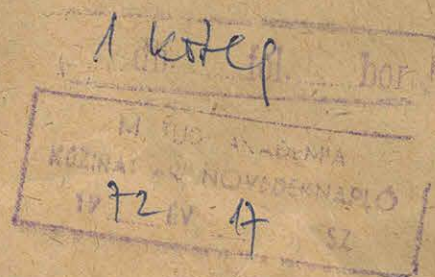 1 köteg
bor
M. TUD. AKADÉMIA
KÉZIRAT NÖVEDÉKNAPLÓ
1972 ÉV 17 SZ